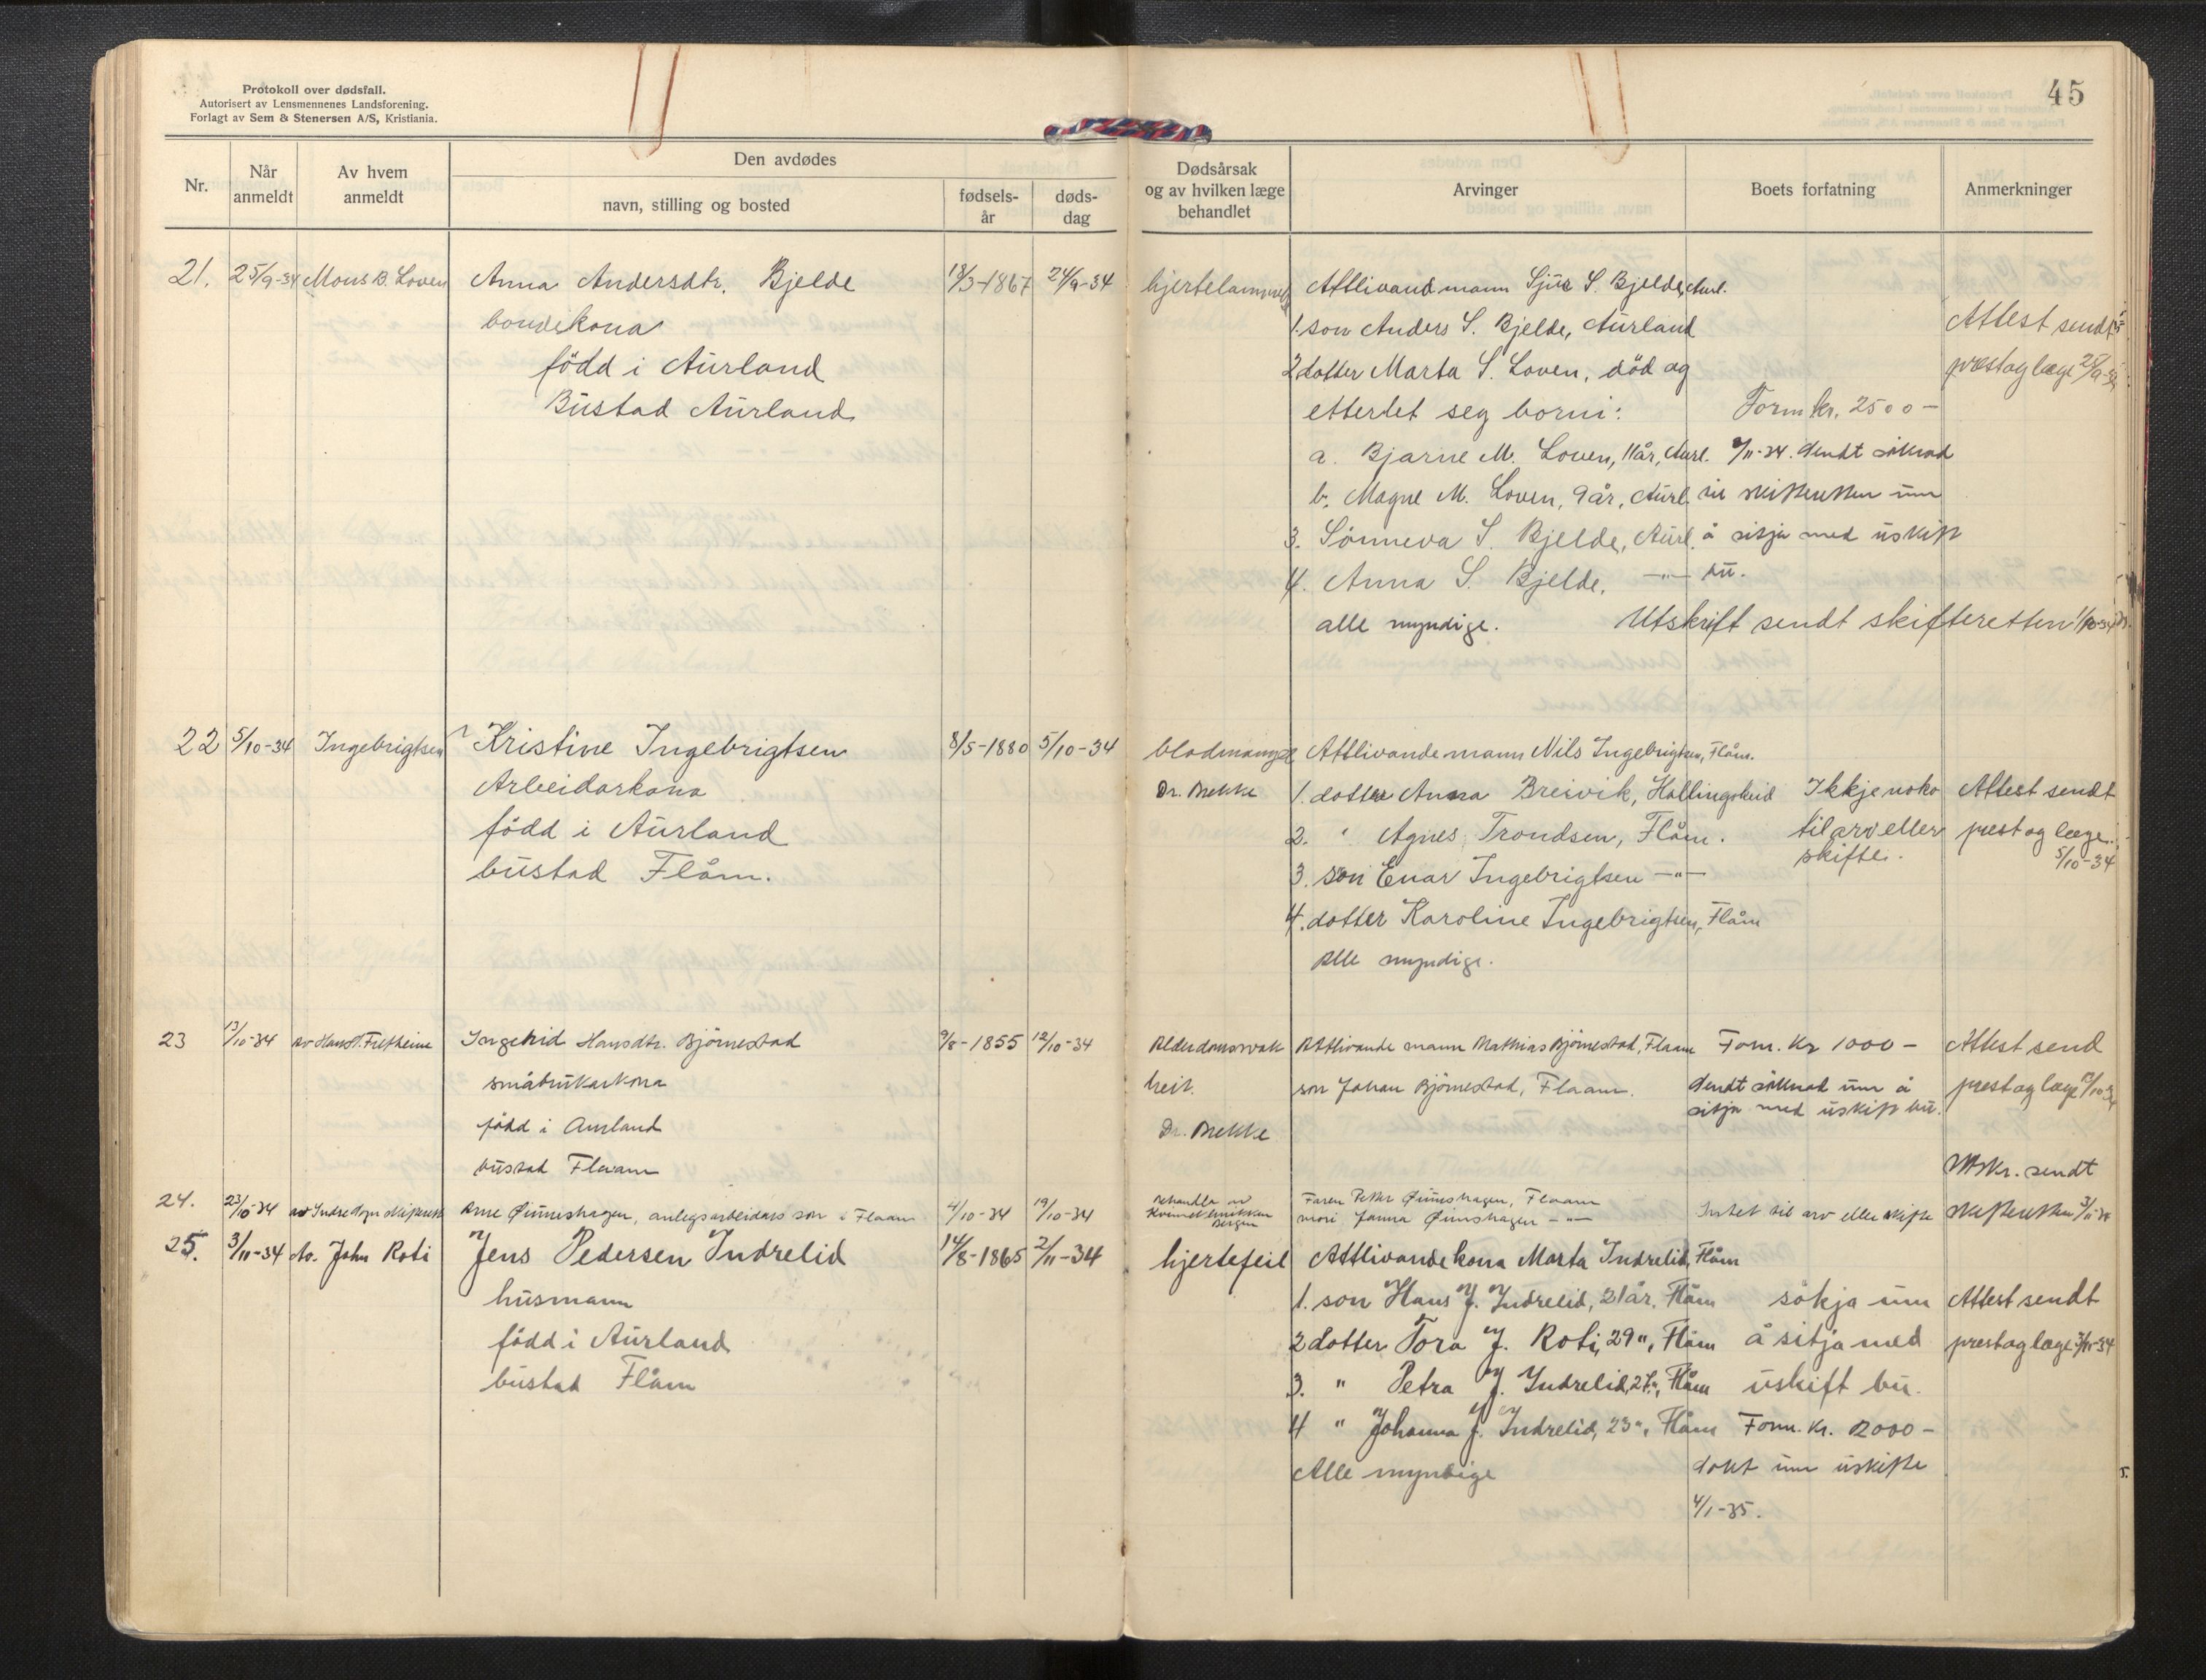 Protokoll over dødsfall.
Autorisert av Lensmennenes Landsforening.
Forlagt av Sem & Stenersen A/S, Kristiania.
45
Nr.
Når anmeldt
Av hvem anmeldt
Den avdødes
navn, stilling og bosted
fødsels-år
døds-dag
Dødsårsak og av hvilken læge behandlet
Arvinger
Boets forfatning
Anmerkninger
21. 25/9-34 Mons B. Loven Anna Andersdtr. Bjelde 18/3-1867 24/9-34 Attlivand mann Sjur S. Bjelde, Aurl.
bondekona 1. son Anders S. Bjelde, Aurland Attest sendt
född i Aurland 2 dotter Marta S. Loven, död og prest og læge 25/9-34
Bustad Aurland etterlet seg borni: Form kr. 2500-
a. Bjarne M. Loven, 11 år, Aurl. sendt söknad
b. Magne M. Loven, 9 år, Aurl. til skifteretten um
3. Sönneva S. Bjelde, Aurl. å sitja med uskift
4. Anna S. Bjelde. —"— bu.
alle myndige. Utskrift sendt skifteretten
22 5/10-34 Ingebrigtsen Kristine Ingebrigtsen 8/5-1880 5/10-34 blodmangel Attlivande mann Nils Ingebrigtsen, Flåm.
Arbeidarkona Dr. Brekke 1. dotter Anna Breivik, Hallingskeid Ikkje noko Attest sendt
född i Aurland 2. " Agnes Trondsen, Flåm. til arv eller prest og læge.
bustad Flåm. 3. son Einar Ingebrigtsen —"— skifte. 5/10-34
4. dotter Karoline Ingebrigtsen, Flåm
Alle myndige.
23 13/10-34 av Hans T. Fretheim Ingebrid Hansdtr. Björnestad 9/8-1855 12/10-34 Alderdomsveik Attlivande mann Mathias Björnestad, Flaam Form. Kr 1000- Attest send
småbrukarkona heit. son Johan Björnestad, Flaam. Sendt söknad um å prest og læge 13/10-34
sitja med uskift bu.
född i Aurland Dr. Brekke
bustad Flaam Utskr. sendt
24. 23/10-34 av Indre Sogn skifterett Arne anlegsarbeidars son i Flaam 4/10-34 19/10-34 Behandla av Kvinneklinikken Bergen Faren Petter Flaam Intet til arv eller skifte skifteretten
mori Janna —"—
25. 3/11-34 Av. John Roti Jens Pedersen Indrelid 14/8-1865 2/11-34 hjertefeil Attlivande kona Marta Indrelid, Flåm
husmann 1. son Hans J. Indrelid, 21 år, Flåm sökja um Attest sendt
född i Aurland 2 dotter Tora J. Roti, 29 ", Flåm å sitja med prest og læge 3/11-34
bustad Flåm 3. " Petra J. Indrelid, 27 ", Flåm uskift bu.
4 " Johanna J. Indrelid, 23 ", Flåm Form. Kr. 2000-
Alle myndige um uskifte
4/1-35.